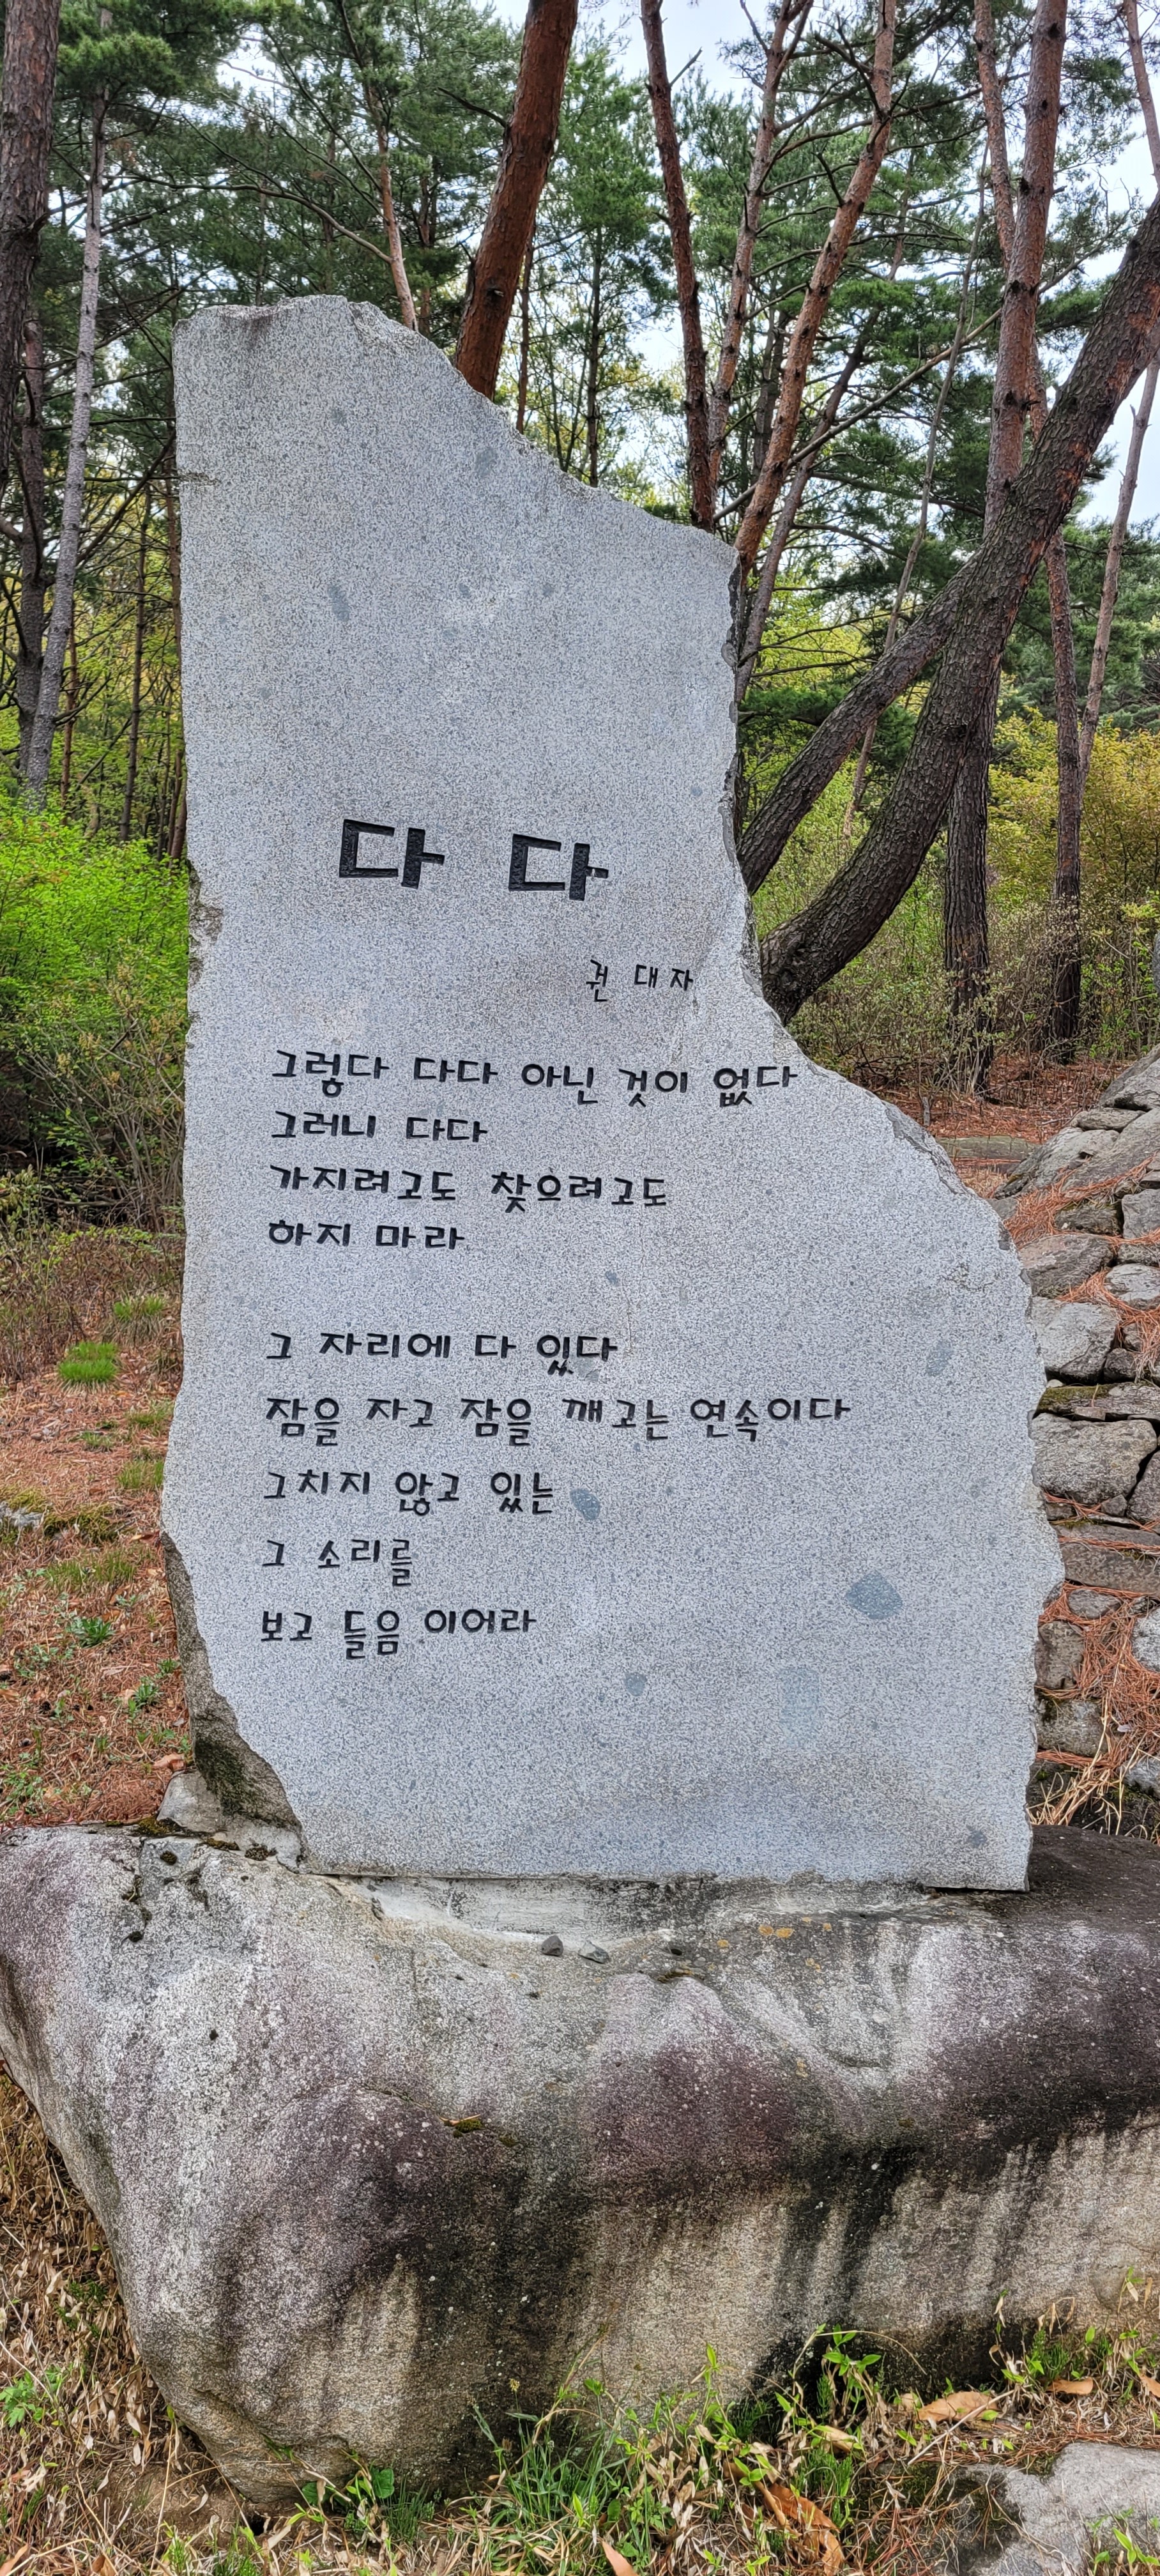 다 다
권 대자
그렇다 다다 아닌 것이 없다
그러니 다다
가지려고도 찾으려고도
하지 마라
그 자리에 다 있다
잠을 자고 잠을 깨고는 연속이다
그치지 않고 있는
그 소리를
보고 들음 이어라